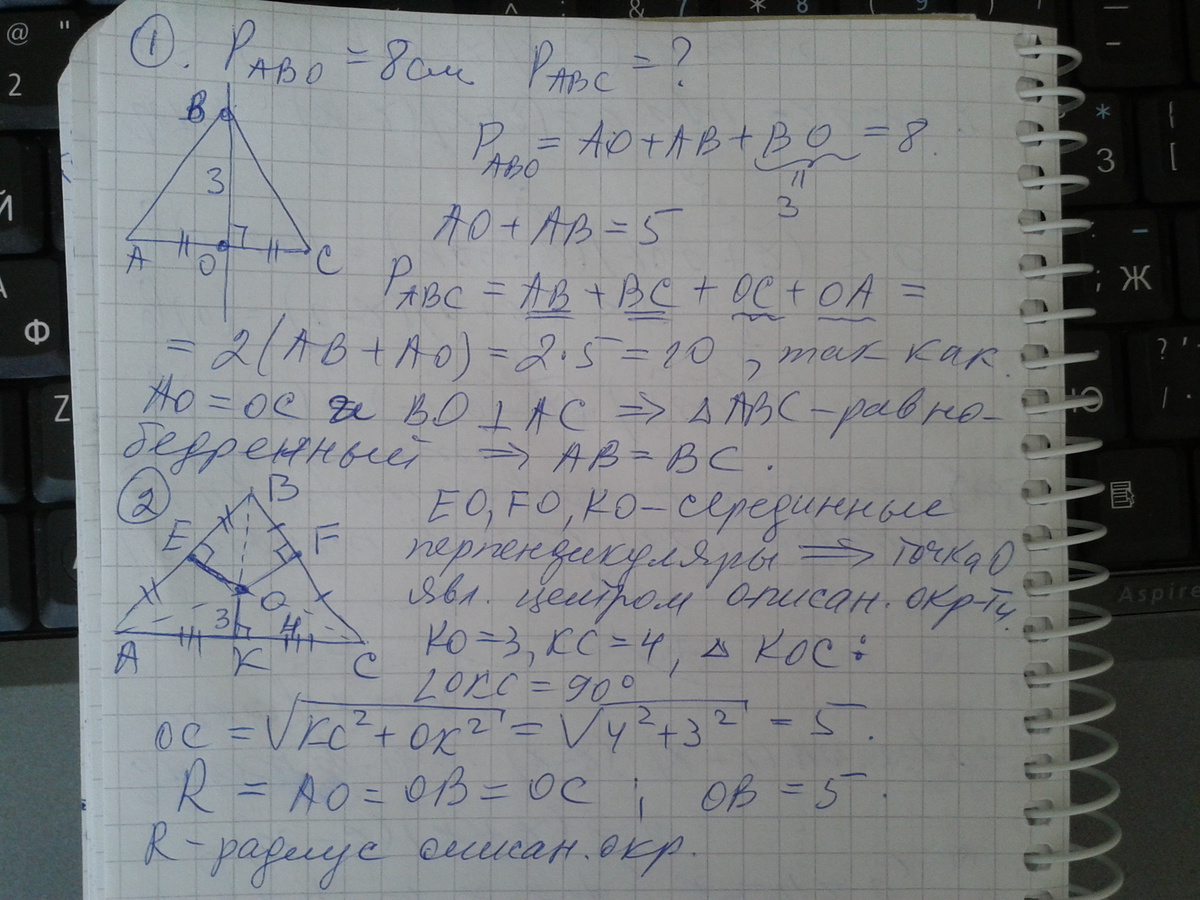 ① . P_ABO = 8см P_ABC = ?
B
3
A O C
P_ABO = AO + AB + BO = 8.
॥
3
AO + AB = 5
P_ABC = AB + BC + OC + OA =
= 2(AB + AO) = 2·5 = 10 , так как
AO = OC и BO ⊥ AC ⇒ △ABC – равно-
бедренный ⇒ AB = BC .
②
B
E F
O
3 4
A K C
EO, FO, KO – серединные
перпендикуляры ⇒ точка O
явл. центром описан. окр-ти
KO = 3, KC = 4, △ KOC :
∠OKC = 90°
OC = √KC² + OK² = √4² + 3² = 5 .
R = AO = OB = OC ; OB = 5 .
R – радиус описан. окр.
@ "
2
Й
А
Ф
Z
& 7 * 8 ( 9
*
З
{
[
; Ж
? '
/ .
Ю
Aspire